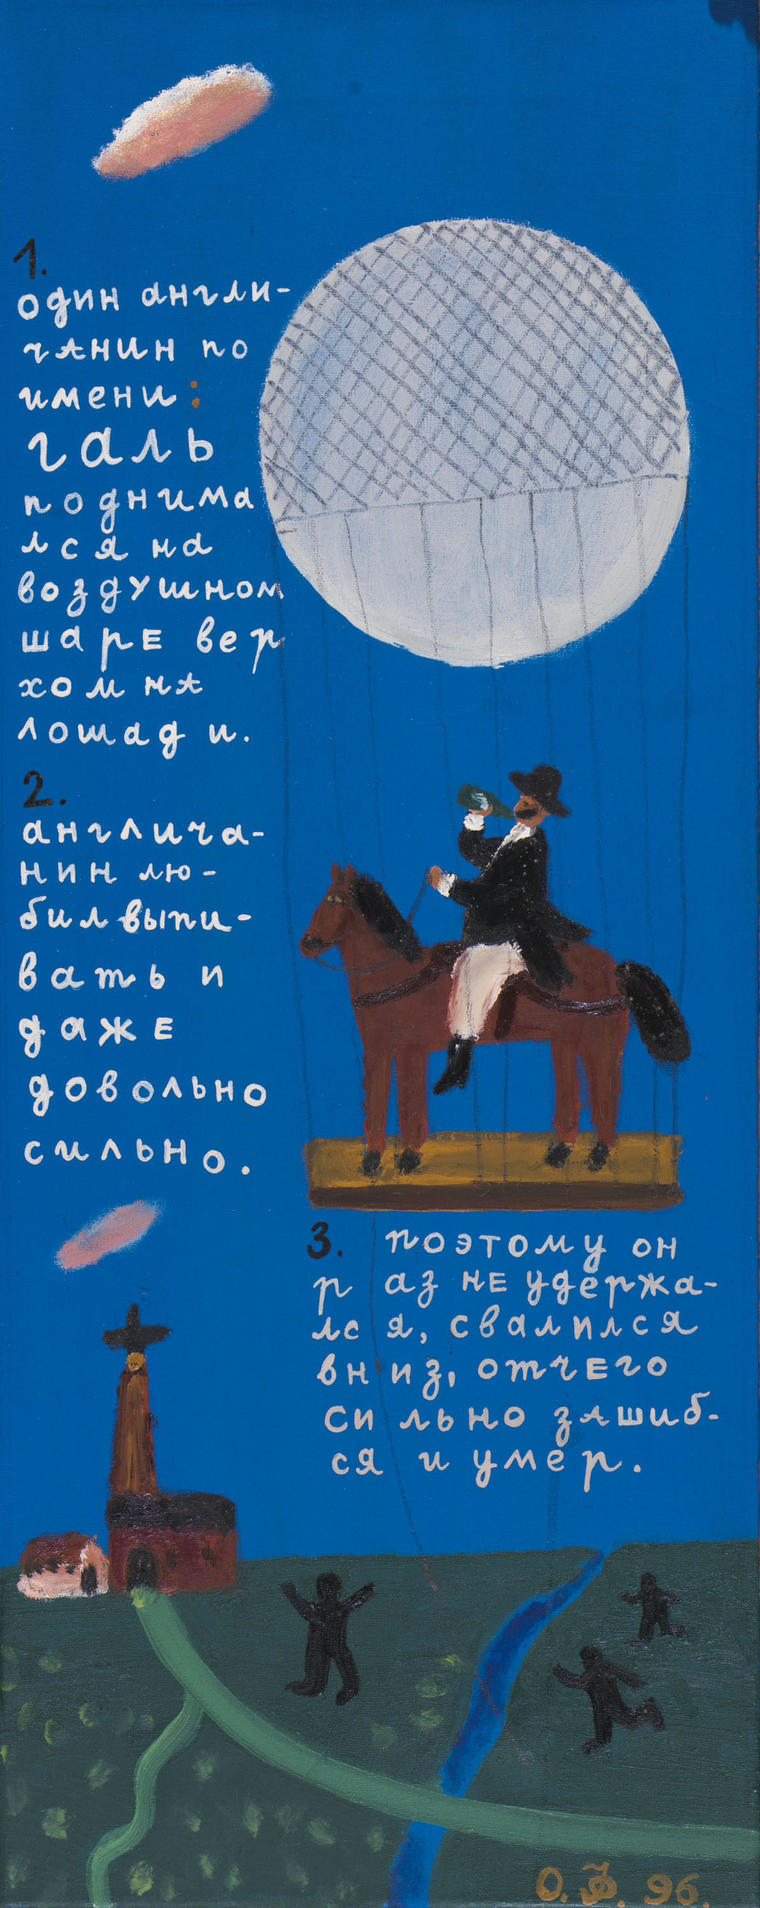 1.
один англи-
чанин по
имени:
галь
поднима
лся на
воздушном
шаре вер
хом на
лошади.
2.
англича-
нин лю-
бил выпи-
вать и
даже
довольно
сильно.
3. поэтому он
раз не удержа-
лся, свалился
вниз, отчего
сильно зашиб-
ся и умер.
О. Ф. 96.